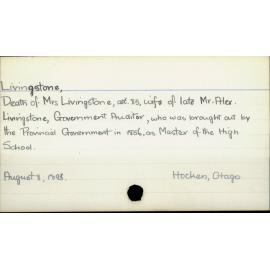 Livingstone,
Death of Mrs Livingstone, aet. 85, wife of late Mr. Alex.
Livingstone, Government Auditor, who was brought out by
the Provincial Government in 1856, as Master of the High
School.
August 8, 1898. Hocken, Otago